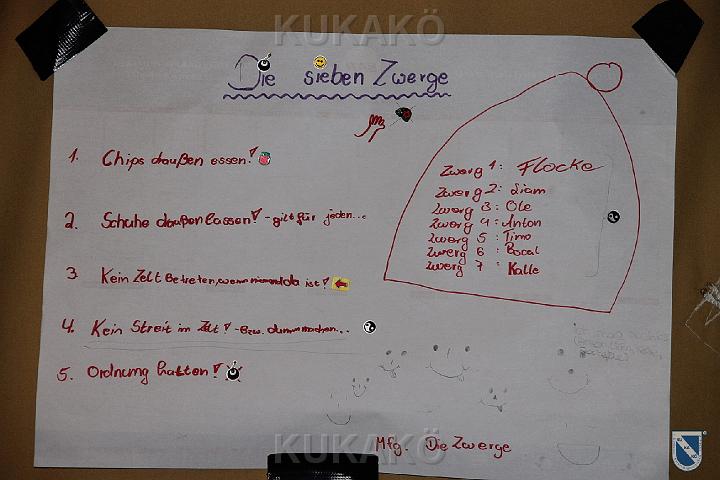 KUKAKÖ
Die sieben Zwerge
1. Chips draußen essen!
2. Schuhe draußen lassen! - gilt für jeden...
3. Kein Zelt Betreten, wenn niemand da ist!
4. Kein Streit im Zelt! - Bzw. dumm machen...
5. Ordnung halten!
Zwerg 1: Flocke
Zwerg 2: Liam
Zwerg 3: Ole
Zwerg 4: Anton
Zwerg 5: Timo
Zwerg 6:
Zwerg 7: Kalle
Mfg. Die Zwerge
KUKAKÖ